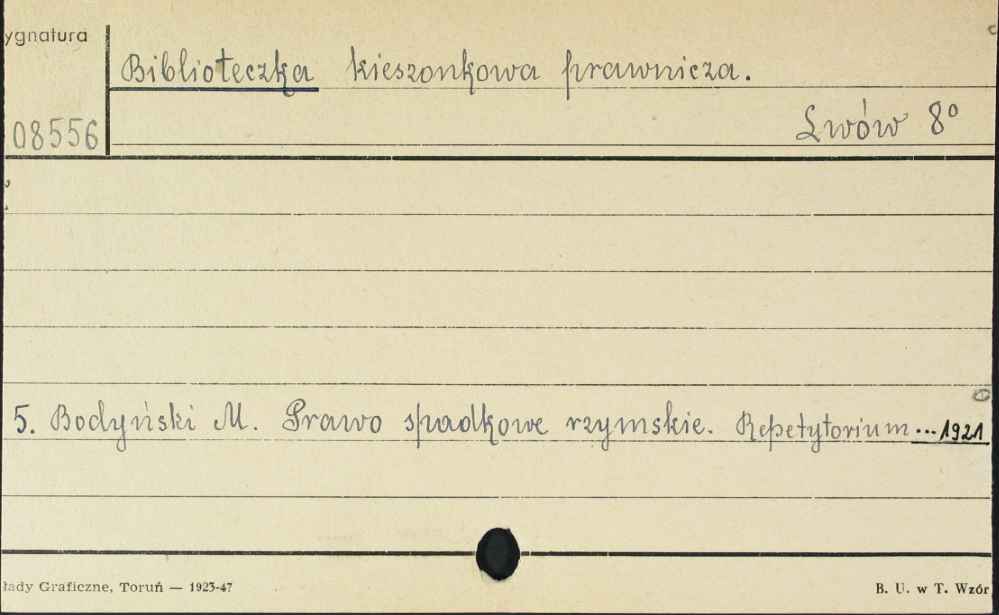 ygnatura
Biblioteczka kieszonkowa prawnicza.
Lwów 8º
08556
5. Bodyński M. Prawo spadkowe rzymskie. Repetytorium ... 1921
łady Graficzne, Toruń — 1923-47
B. U. w T. Wzór